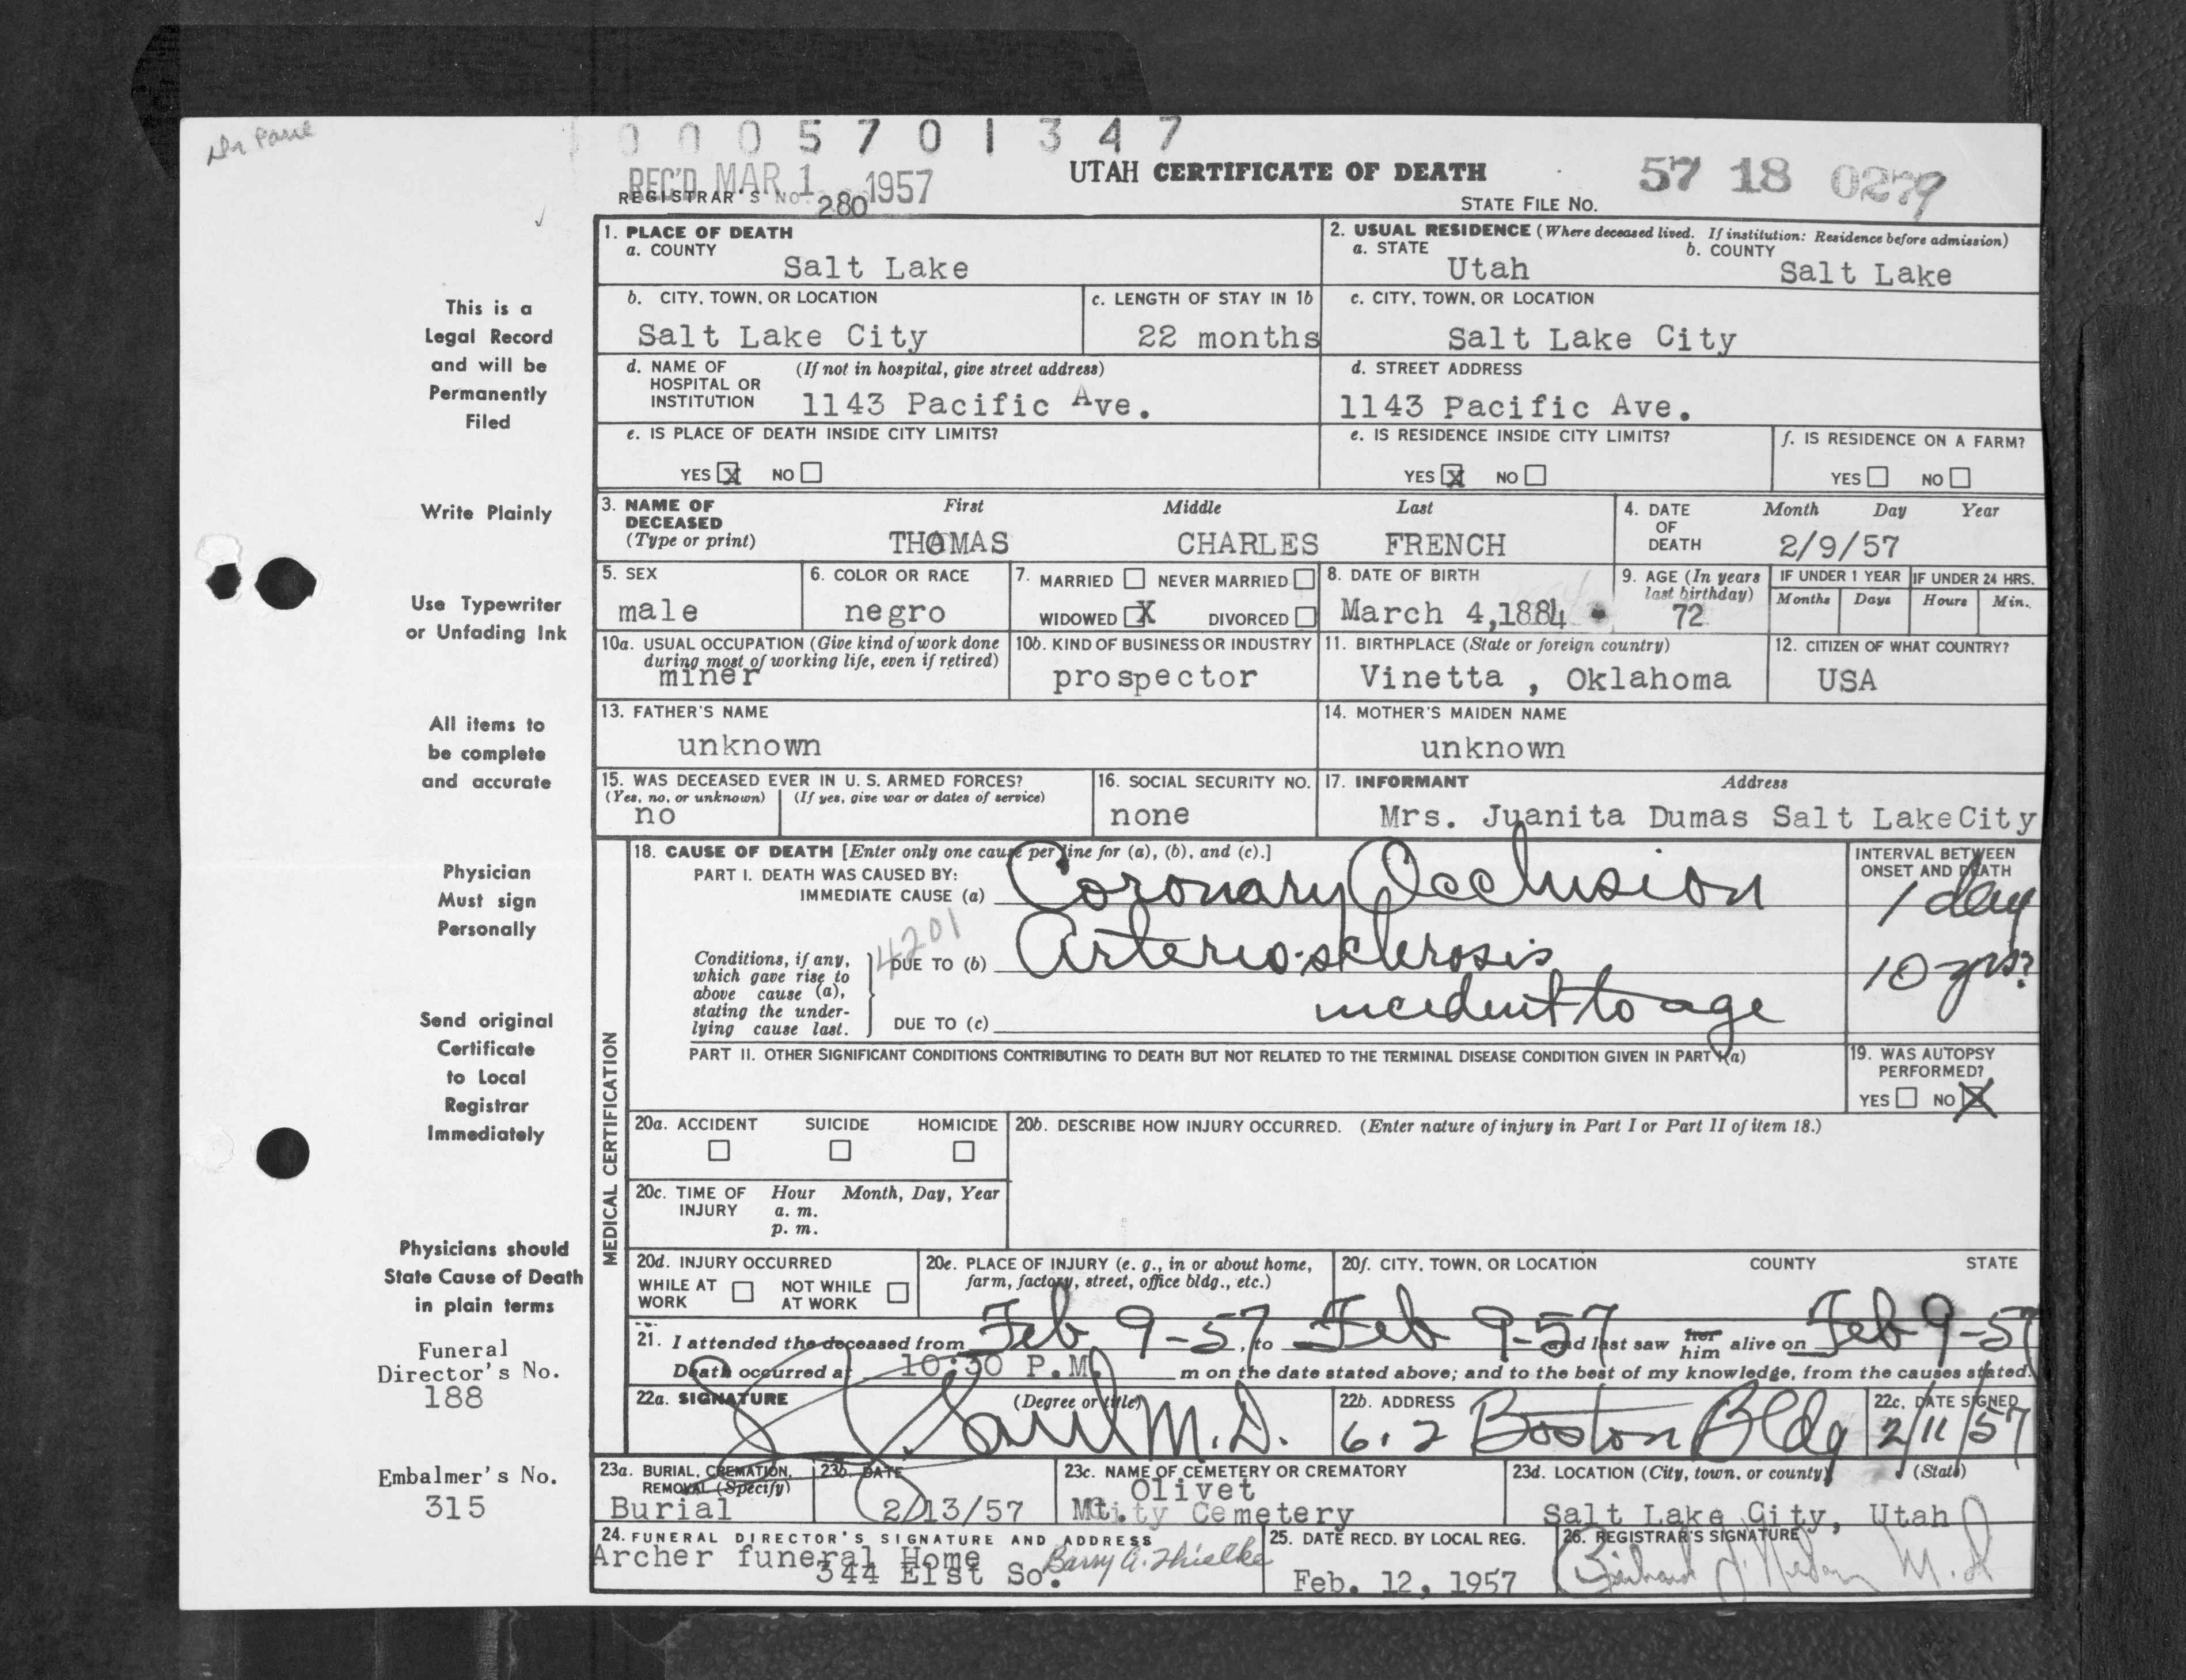 Dr Paul
0005701347
REC'D MAR 1 1957
REGISTRAR'S No. 280
UTAH CERTIFICATE OF DEATH
57 18 0279
STATE FILE NO.
This is a
Legal Record
and will be
Permanently
Filed
Write Plainly
Use Typewriter
or Unfading Ink
All items to
be complete
and accurate
Physician
Must sign
Personally
Send original
Certificate
to Local
Registrar
Immediately
Physicians should
State Cause of Death
in plain terms
Funeral
Director's No.
188
Embalmer's No.
315
1. PLACE OF DEATH
a. COUNTY
Salt Lake
2. USUAL RESIDENCE (Where deceased lived. If institution: Residence before admission)
a. STATE b. COUNTY
Utah Salt Lake
b. CITY, TOWN, OR LOCATION
Salt Lake City
c. LENGTH OF STAY IN 1b
22 months
c. CITY, TOWN, OR LOCATION
Salt Lake City
d. NAME OF (If not in hospital, give street address)
HOSPITAL OR
INSTITUTION 1143 Pacific Ave.
d. STREET ADDRESS
1143 Pacific Ave.
e. IS PLACE OF DEATH INSIDE CITY LIMITS?
YES X NO
e. IS RESIDENCE INSIDE CITY LIMITS?
YES X NO
f. IS RESIDENCE ON A FARM?
YES NO
3. NAME OF First Middle Last
DECEASED
(Type or print) THOMAS CHARLES FRENCH
4. DATE Month Day Year
OF
DEATH 2/9/57
5. SEX
male
6. COLOR OR RACE
negro
7. MARRIED NEVER MARRIED
WIDOWED X DIVORCED
8. DATE OF BIRTH
March 4,1884
9. AGE (In years
last birthday)
72
IF UNDER 1 YEAR IF UNDER 24 HRS.
Months Days Hours Min.
10a. USUAL OCCUPATION (Give kind of work done
during most of working life, even if retired)
miner
10b. KIND OF BUSINESS OR INDUSTRY
prospector
11. BIRTHPLACE (State or foreign country)
Vinetta , Oklahoma
12. CITIZEN OF WHAT COUNTRY?
USA
13. FATHER'S NAME
unknown
14. MOTHER'S MAIDEN NAME
unknown
15. WAS DECEASED EVER IN U. S. ARMED FORCES?
(Yes, no, or unknown) (If yes, give war or dates of service)
no
16. SOCIAL SECURITY NO.
none
17. INFORMANT Address
Mrs. Juanita Dumas Salt Lake City
MEDICAL CERTIFICATION
18. CAUSE OF DEATH [Enter only one cause per line for (a), (b), and (c).]
PART I. DEATH WAS CAUSED BY:
IMMEDIATE CAUSE (a) Coronary Occlusion
INTERVAL BETWEEN
ONSET AND DEATH
1 day
4201
Conditions, if any,
which gave rise to
above cause (a),
stating the under-
lying cause last.
DUE TO (b) Arterio-sclerosis
10 yrs?
incident to age
DUE TO (c)
PART II. OTHER SIGNIFICANT CONDITIONS CONTRIBUTING TO DEATH BUT NOT RELATED TO THE TERMINAL DISEASE CONDITION GIVEN IN PART I(a)
19. WAS AUTOPSY
PERFORMED?
YES NO X
20a. ACCIDENT SUICIDE HOMICIDE
20b. DESCRIBE HOW INJURY OCCURRED. (Enter nature of injury in Part I or Part II of item 18.)
20c. TIME OF Hour Month, Day, Year
INJURY a. m.
p. m.
20d. INJURY OCCURRED
WHILE AT NOT WHILE
WORK AT WORK
20e. PLACE OF INJURY (e. g., in or about home,
farm, factory, street, office bldg., etc.)
20f. CITY, TOWN, OR LOCATION COUNTY STATE
21. I attended the deceased from Feb 9-57, to Feb 9-57 and last saw her him alive on Feb 9-57
Death occurred at 10:30 P.M. m on the date stated above; and to the best of my knowledge, from the causes stated.
22a. SIGNATURE (Degree or title)
Paul M.D.
22b. ADDRESS
612 Boston Bldg
22c. DATE SIGNED
2/11/57
23a. BURIAL, CREMATION,
REMOVAL (Specify)
Burial
23b. DATE
2/13/57
23c. NAME OF CEMETERY OR CREMATORY
Olivet
Mt. Cemetery
23d. LOCATION (City, town, or county) (State)
Salt Lake City, Utah
24. FUNERAL DIRECTOR'S SIGNATURE AND ADDRESS
Archer funeral Home Barry A. Thielke
344 E1st So.
25. DATE RECD. BY LOCAL REG.
Feb. 12, 1957
26. REGISTRAR'S SIGNATURE
M.D